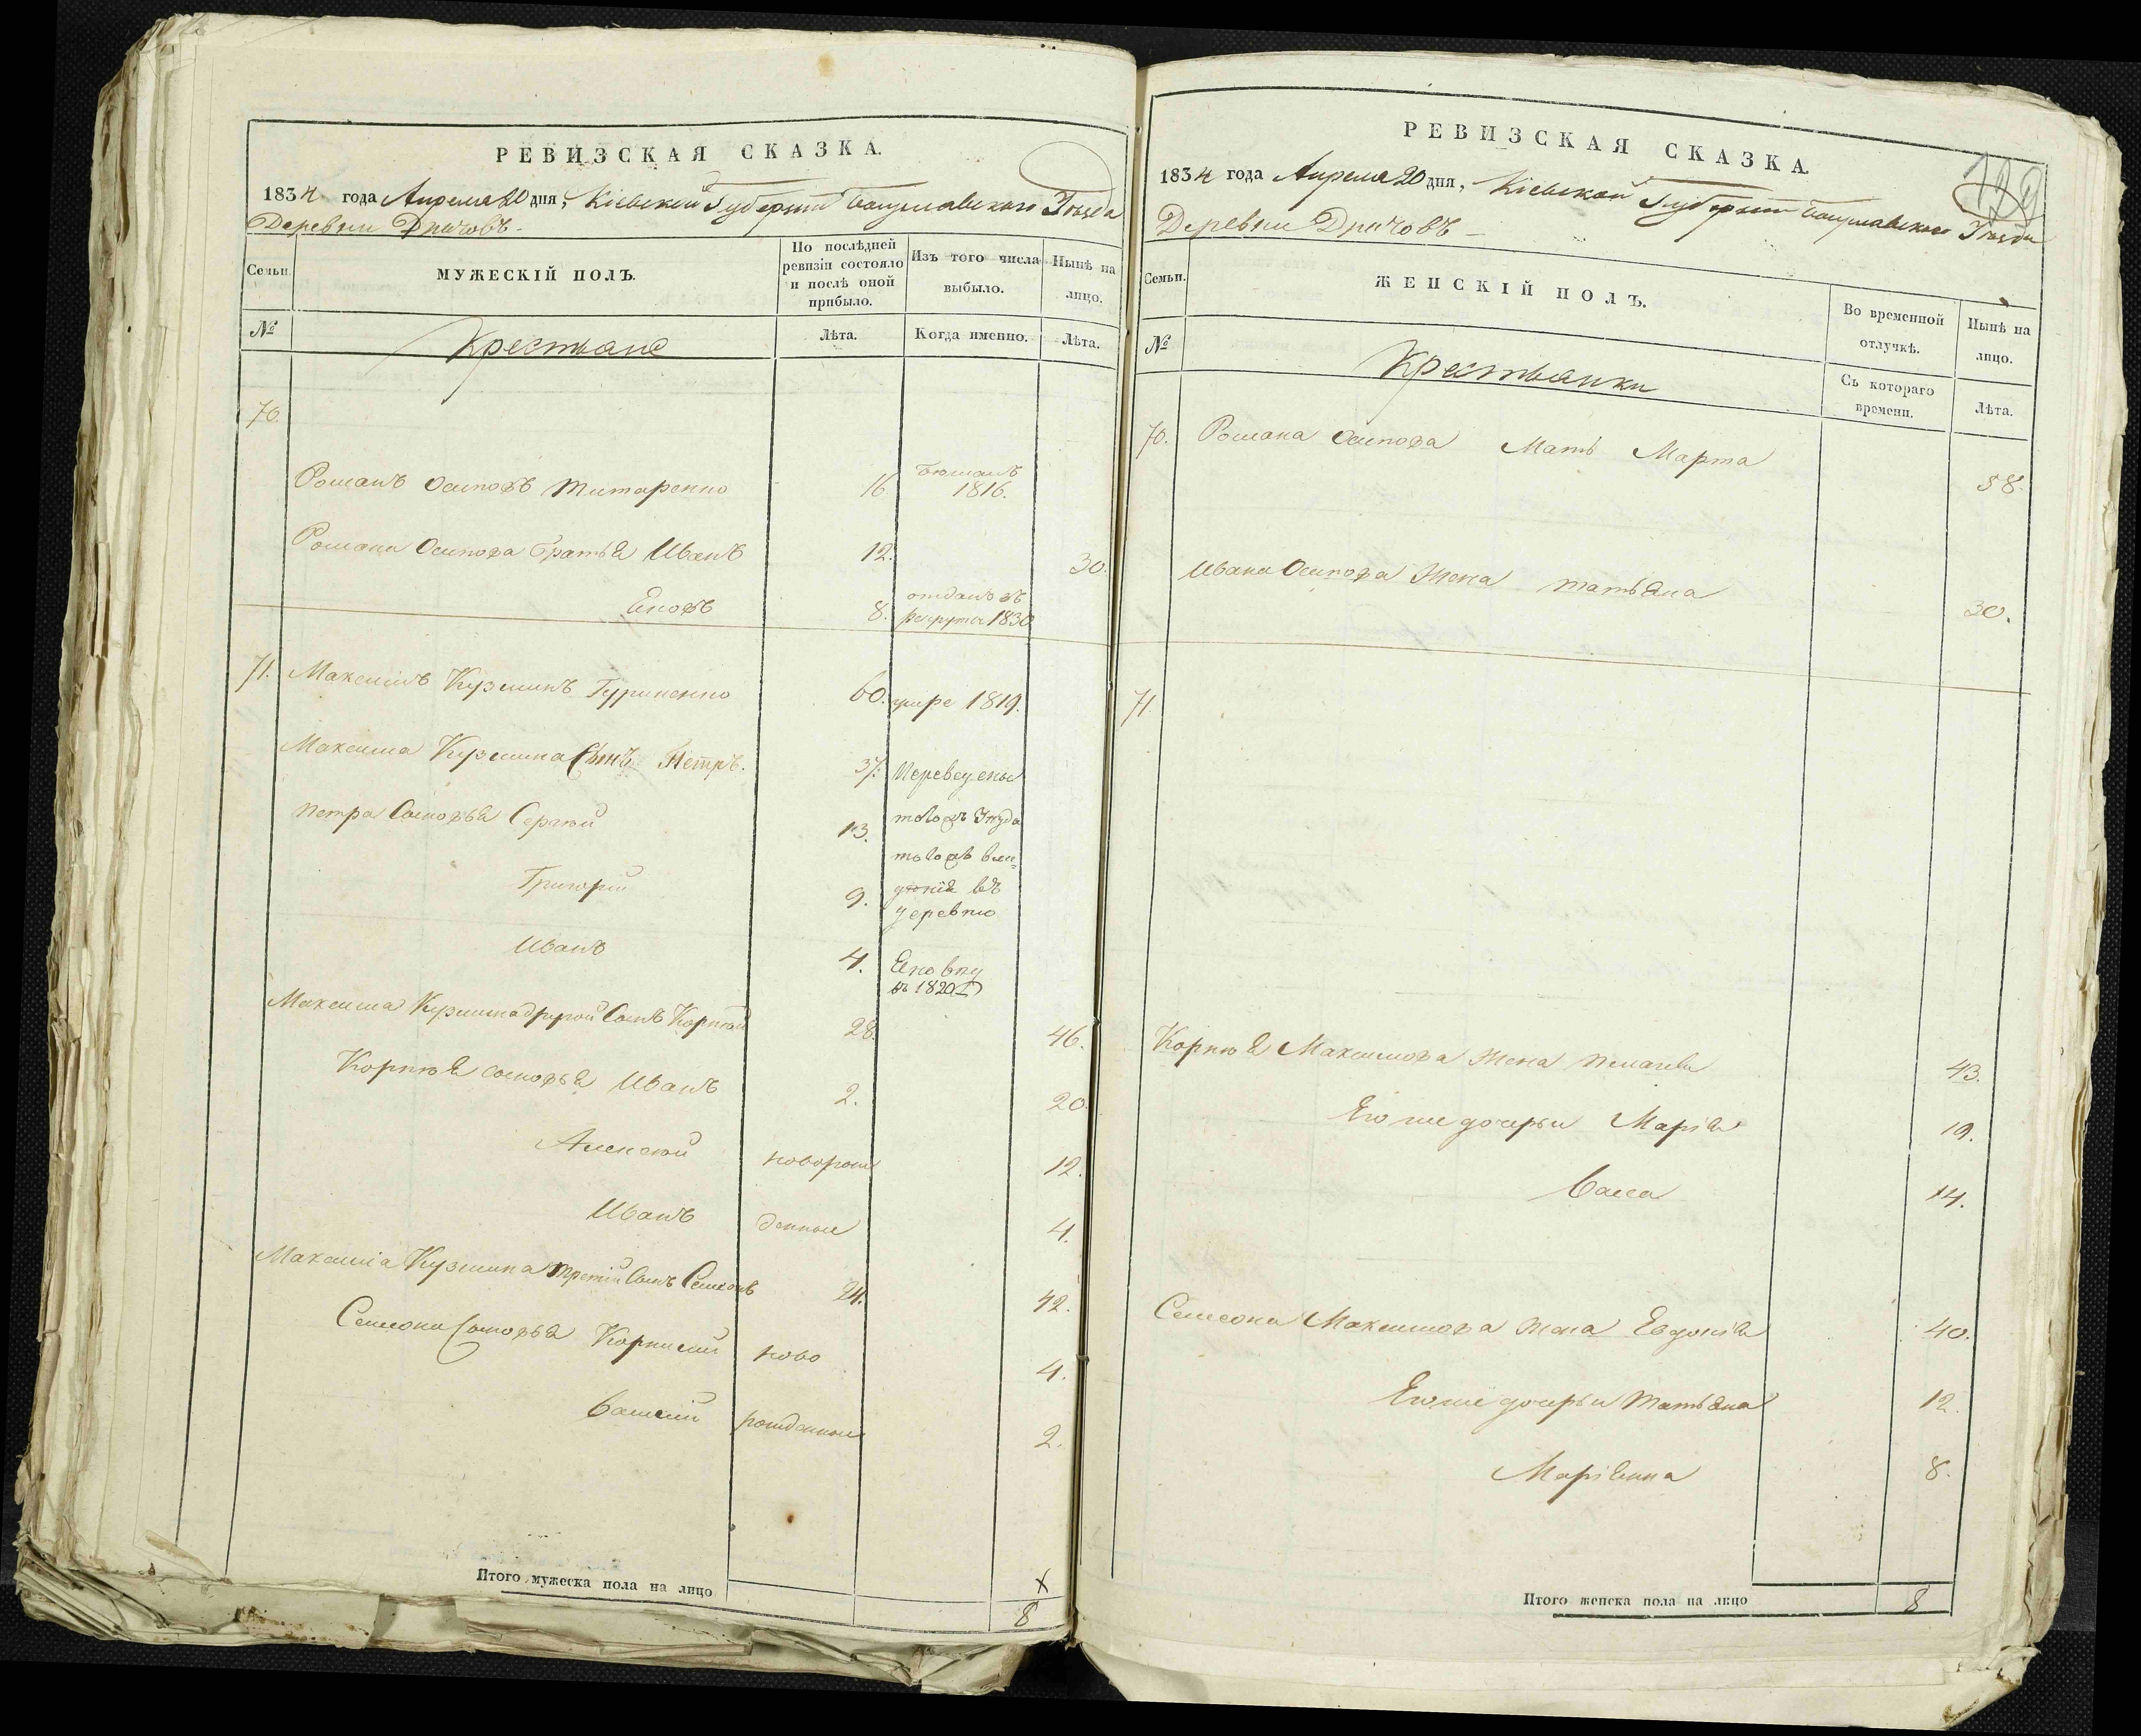 РЕВИЗСКАЯ СКАЗКА.
1834 года Апреля 20 дня, Кіевской Губерніи Богуславского Уезда
Деревни Драчовъ
Семьи.
МУЖЕСКІЙ ПОЛЪ.
По послѣдней ревизіи состояло и послѣ оной прибыло.
Изъ того числа выбыло.
Нынѣ на лицо.
№
Крестьяне
Лѣта.
Когда именно.
Лѣта.
70.
Романъ Осиповъ Титаренко 16 бежалъ 1816.
Романа Осипова братья Иванъ 12. 30.
8. отданъ въ рекруты 1830
71. Максимъ Кузминъ Гуриненко 60. умре 1819.
Максима Кузмина Сынъ Петръ. 37. Переведены
Петра Сыновья Сергей 13.
Григорій 9.
въ деревню
Иванъ 4.
въ 1820
Максима Кузмина другой Сынъ Корней 28. 46.
Корнея сыновья Иванъ 2. 20.
Алексей новорож 12.
Иванъ денные 4.
Максима Кузмина третій Сынъ Семіонъ 24. 42.
Семиона Сыновья Корнилий ново 4.
Василий рожденные 2.
Итого мужеска пола на лицо 8
РЕВИЗСКАЯ СКАЗКА.
129
1834 года Апреля 20 дня, Кіевской Губерніи Богуславского Уезда
Деревни Драчовъ
Семьи.
ЖЕНСКІЙ ПОЛЪ.
Во временной отлучкѣ.
Нынѣ на лицо.
№
Крестьянки
Съ котораго времени.
Лѣта.
70. Романа Осипова Мать Марта 58.
Ивана Осипова Жена Татьяна 30.
71.
Корнея Максимова Жена Пелагея 43.
Его же дочери Марія 19.
Васса 14.
Семиона Максимова жена Евдокія 40.
Его же дочери Татьяна 12.
Маріянна 8.
Итого женска пола на лицо 8